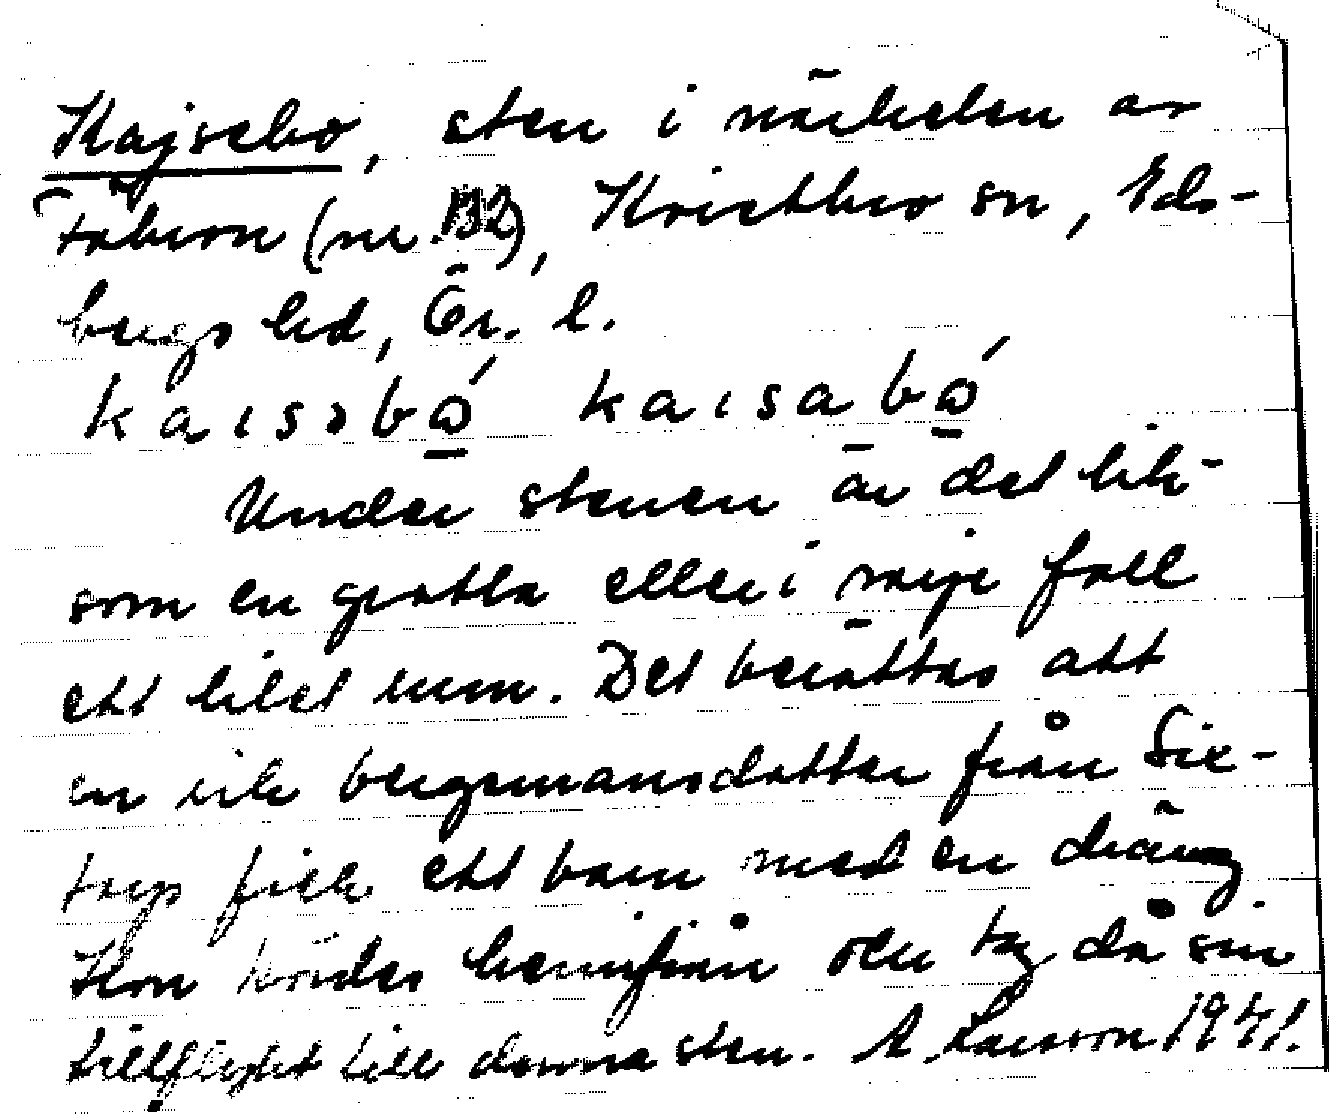 Kajsebo, sten i närheten av
Tabron (nr. 132), Karlsbro sn, Eds-
bergs hd, Ör. l.
kaɪsəbó̱ kaɪsabó̱
Under stenen är det lik-
som en grotta eller i varje fall
ett litet rum. Det berättas att
en rik bergsmansdotter från Six-
torp fick ett barn med en dräng
Hon kördes hemifrån och tog då sin
tillflykt till denna sten. A. Larsson 1941.